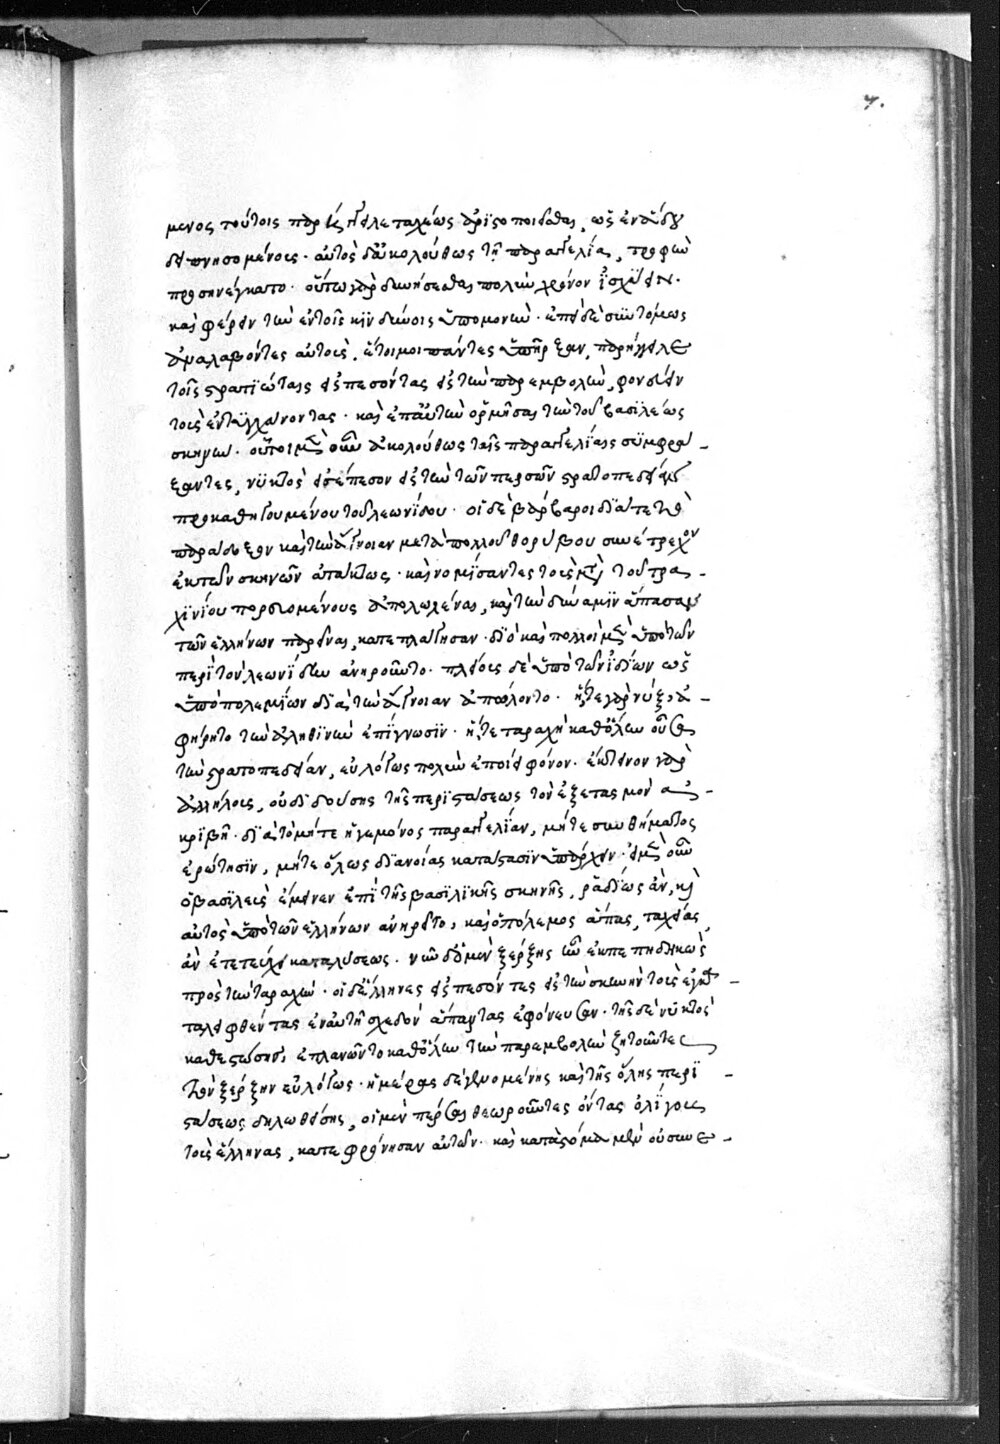 7.
μενος τούτοις παρήγγειλε ταχέως ἀριστοποιεῖσθαι, ὡς ἐν ᾅδου
δειπνησομένους. αὐτὸς δ' ἀκολούθως τῇ παραγγελίᾳ, τροφὴν
προσηνέγκατο. οὕτω γὰρ δυνήσεσθαι πολὺν χρόνον ἰσχύειν.
καὶ φέρειν τὴν ἐν τοῖς κινδύνοις ὑπομονήν. ἐπεὶ δὲ συντόμως
ἀναλαβόντες αὐτοὺς, ἕτοιμοι πάντες ὑπῆρξαν, παρήγγειλε
τοῖς στρατιώταις εἰσπεσόντας εἰς τὴν παρεμβολὴν, φονεύειν
τοὺς ἐντυγχάνοντας. καὶ ἐπ' αὐτὴν ὁρμῆσαι τὴν τοῦ βασιλέως
σκηνήν. οὗτοι μὲν οὖν ἀκολούθως ταῖς παραγγελίαις συμφρά-
ξαντες, νυκτὸς εἰσέπεσον εἰς τὴν τῶν περσῶν στρατοπεδείαν
προκαθηγουμένου τοῦ λεωνίδου. οἱ δὲ βάρβαροι διά τε τὸ
παράδοξον καὶ τὴν ἄγνοιαν μετὰ πολλοῦ θορύβου συνέτρεχον
ἐκ τῶν σκηνῶν ἀτάκτως. καὶ νομίσαντες τοὺς μετὰ τοῦ τρα-
χινίου πορευομένους ἀπολωλέναι, καὶ τὴν δύναμιν ἅπασαν
τῶν ἑλλήνων παρεῖναι, κατεπλάγησαν. διὸ καὶ πολλοὶ μὲν ὑπὸ τῶν
περὶ τὸν λεωνίδην ἀνῃροῦντο. πλείους δὲ ὑπὸ τῶν ἰδίων ὡς
ὑπὸ πολεμίων διὰ τὴν ἄγνοιαν ἀπώλοντο. ἥτε γὰρ νὺξ, ἀ-
φῄρητο τὴν ἀληθινὴν ἐπίγνωσιν. ἥτε ταραχὴ καθ' ὅλην οὖσα
τὴν στρατοπεδείαν, εὐλόγως πολὺν ἐποίει φόνον. ἔκτεινον γὰρ
ἀλλήλους, οὐ διδούσης τῆς περιστάσεως τὸν ἐξετασμὸν ἀ-
κριβῆ. διὰ τὸ μήτε ἡγεμόνος παραγγελίαν, μήτε συνθήματος
ἐρώτησιν, μήτε ὅλως διανοίας κατάστασιν ὑπάρχειν. εἰ μὲν οὖν
ὁ βασιλεὺς ἔμεινεν ἐπὶ τῆς βασιλικῆς σκηνῆς, ῥᾳδίως ἂν, καὶ
αὐτὸς ὑπὸ τῶν ἑλλήνων ἀνῄρητο, καὶ ὁ πόλεμος ἅπας, ταχείας
ἂν ἐτετεύχει καταλύσεως. νῦν δ' ὁ μὲν ξέρξης ἦν ἐκπεπηδηκὼς
πρὸς τὴν ταραχήν. οἱ δ' ἕλληνες εἰσπεσόντες εἰς τὴν σκηνὴν τοὺς ἐγκα-
ταλειφθέντας ἐν αὐτῇ σχεδὸν ἅπαντας ἐφόνευσαν. τῆς δὲ νυκτὸς
καθεστώσης, ἐπλανῶντο καθ' ὅλην τὴν παρεμβολὴν ζητοῦντες
τὸν ξέρξην εὐλόγως. ἡμέρας δὲ γενομένης καὶ τῆς ὅλης περι-
στάσεως δηλωθείσης, οἱ μὲν πέρσαι θεωροῦντες ὄντας ὀλίγους
τοὺς ἕλληνας, κατεφρόνησαν αὐτῶν. καὶ κατὰ στόμα μὲν οὐ συνε-